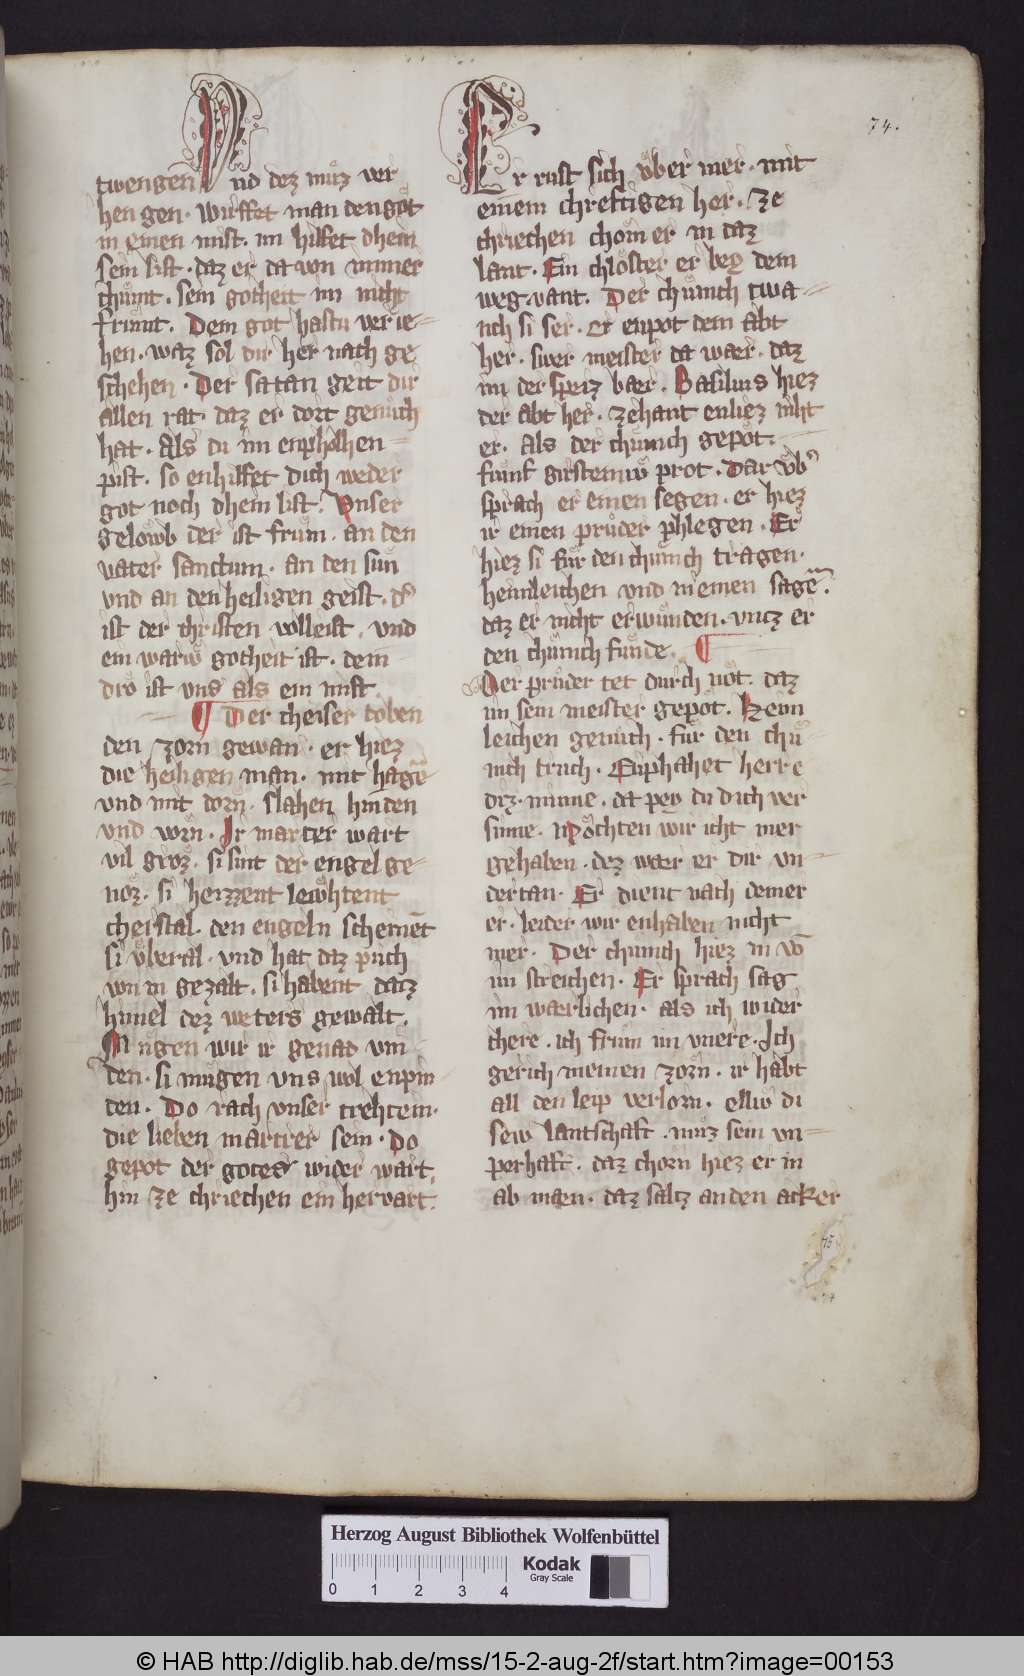 74.
twengen Und dez muͦz ver
hen gen. wirffet man den got
in einen mist. im hilffet dhein
sein list. daz er da von nimer
chuͤmt. sein gotheit im nicht
fruͤmt. Dem got hastu ver ie-
hen. waz sol dir her nach ge
schehen. Der satan geit dir
allen rat. daz er dort genuͦch
hat. Als du im enpholhen
pist. so enhilffet dich weder
got noch dhein list. Unser
geloͮwb der ist frum. an den
vater sanctum. an den suͦn
und an den heiligen geist. d'
ist der christen volleist. und
ein wariv gotheit ist. dem
div ist uns als ein mist.
¶ Der cheiser toben
den zorn gewan. er hiez
die heiligen man. mit hagē
und mit dorn. slahen hinden
und vorn. Ir marter wart
vil groz. si sint der engel ge-
noz. si herzzent lewhtent
cheistal. den engeln scheinēt
si uͤberal. und hat daz puch
von in gezalt. si habent datz
himel dez weters gewalt.
Muͤgen wir ir genad vin
den. si muͤgen uns wol enpin
den. Do rach unser trehtein.
die lieben martrer sein. Do
gepot der gotes wider wart.
hin ze chriechen ein hervart.
Er rust sich uͤber mer. mit
einem chreftigen her. Ze
chriechen chom er in daz
lant. Ein chloster er bey dem
weg vant. Der chuͤnich twa-
nch si ser. er enpot dem abt
her. swer meister da waer. daz
im der speiz baer. Basilius hiez
der abt her. zehant enliez niht
er. als der chuͤnich gepot.
fuͤnf girsteiniv prot. Dar uͤb'
sprach er einen segen. er hiez
ir einen pruͦder phlegen. Er
hiez si fuͤr den chuͤnich tragen.
heimleichen und niemen sagē.
daz er nicht erwuͤnden. untz er
den chuͤnich funde. ¶
Der pruͦder tet durch not. daz
im sein meister gepot. Heim
leichen genuͦch. fuͤr den chuͤ-
nich truͦch. Enphahet herre
ditz minne. da pey du dich ver
sinne. Moͤchten wir icht mer
gehaben. dez waer er dir un-
dertan. Er dient nach deiner
er. leider wir enhaben nicht
mer. Der chuͤnich hiez in vō
im streichen. Er sprach sag
im waerlichen. als ich wider
chere. ich frum im unere. Ich
gerich meinen zorn. ir habt
all den leip verlorn. elliv di
sew lantschaft. muͦz sein un-
perhaft. daz chorn hiez er in
ab maen. daz saltz an den acker
75
74
Herzog August Bibliothek Wolfenbüttel
0 1 2 3 4
Kodak
Gray Scale
© HAB http://diglib.hab.de/mss/15-2-aug-2f/start.htm?image=00153